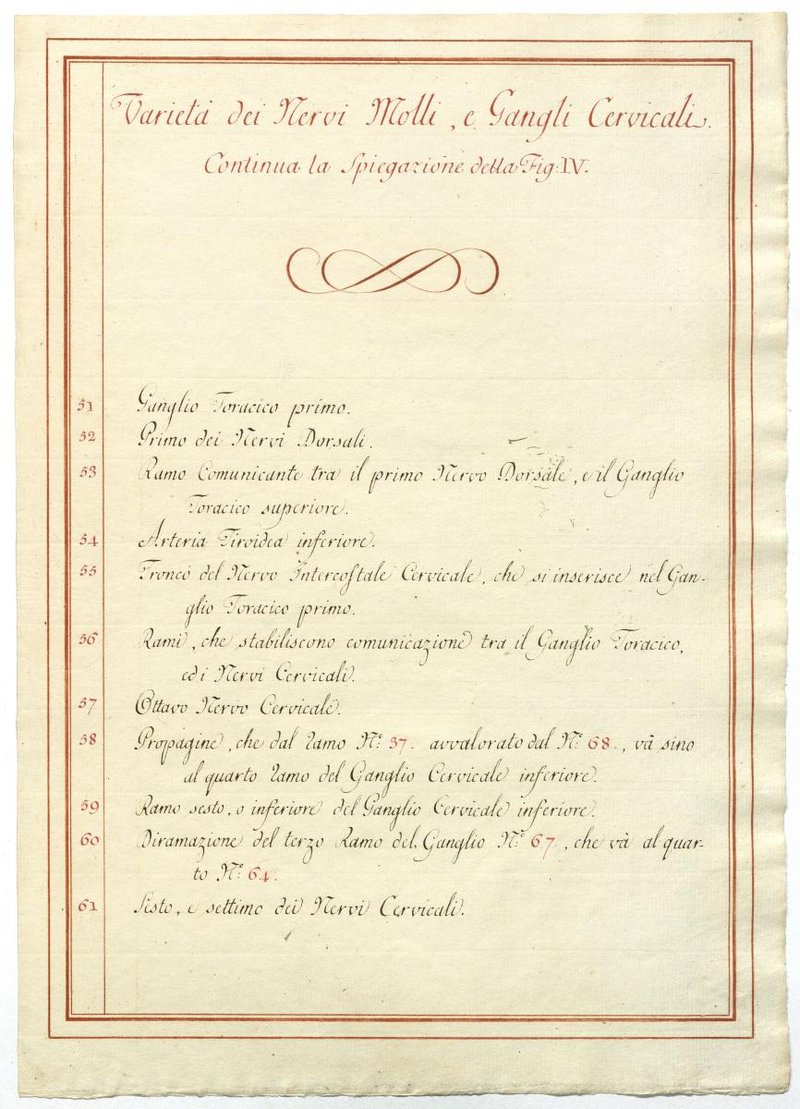 Varietà dei Nervi Molli, e Gangli Cervicali.
Continua la Spiegazione della Fig: IV.
51 Ganglio Toracico primo.
52 Primo dei Nervi Dorsali.
53 Ramo Comunicante tra il primo Nervo Dorsale, e il Ganglio
Toracico superiore.
54 Arteria Tiroidea inferiore.
55 Tronco del Nervo Intercoſtale Cervicale, che si inserisce nel Gan-
glio Toracico primo.
56 Rami, che stabiliscono comunicazione tra il Ganglio Toracico,
ed i Nervi Cervicali.
57 Ottavo Nervo Cervicale.
58 Propagine, che dal ramo N.º 37. avvalorato dal N.º 68., và sino
al quarto ramo del Ganglio Cervicale inferiore.
59 Ramo sesto, o inferiore del Ganglio Cervicale inferiore.
60 Diramazione del terzo Ramo del Ganglio N.º 67, che và al quar-
to N.º 64.
61 Sesto, e settimo dei Nervi Cervicali.